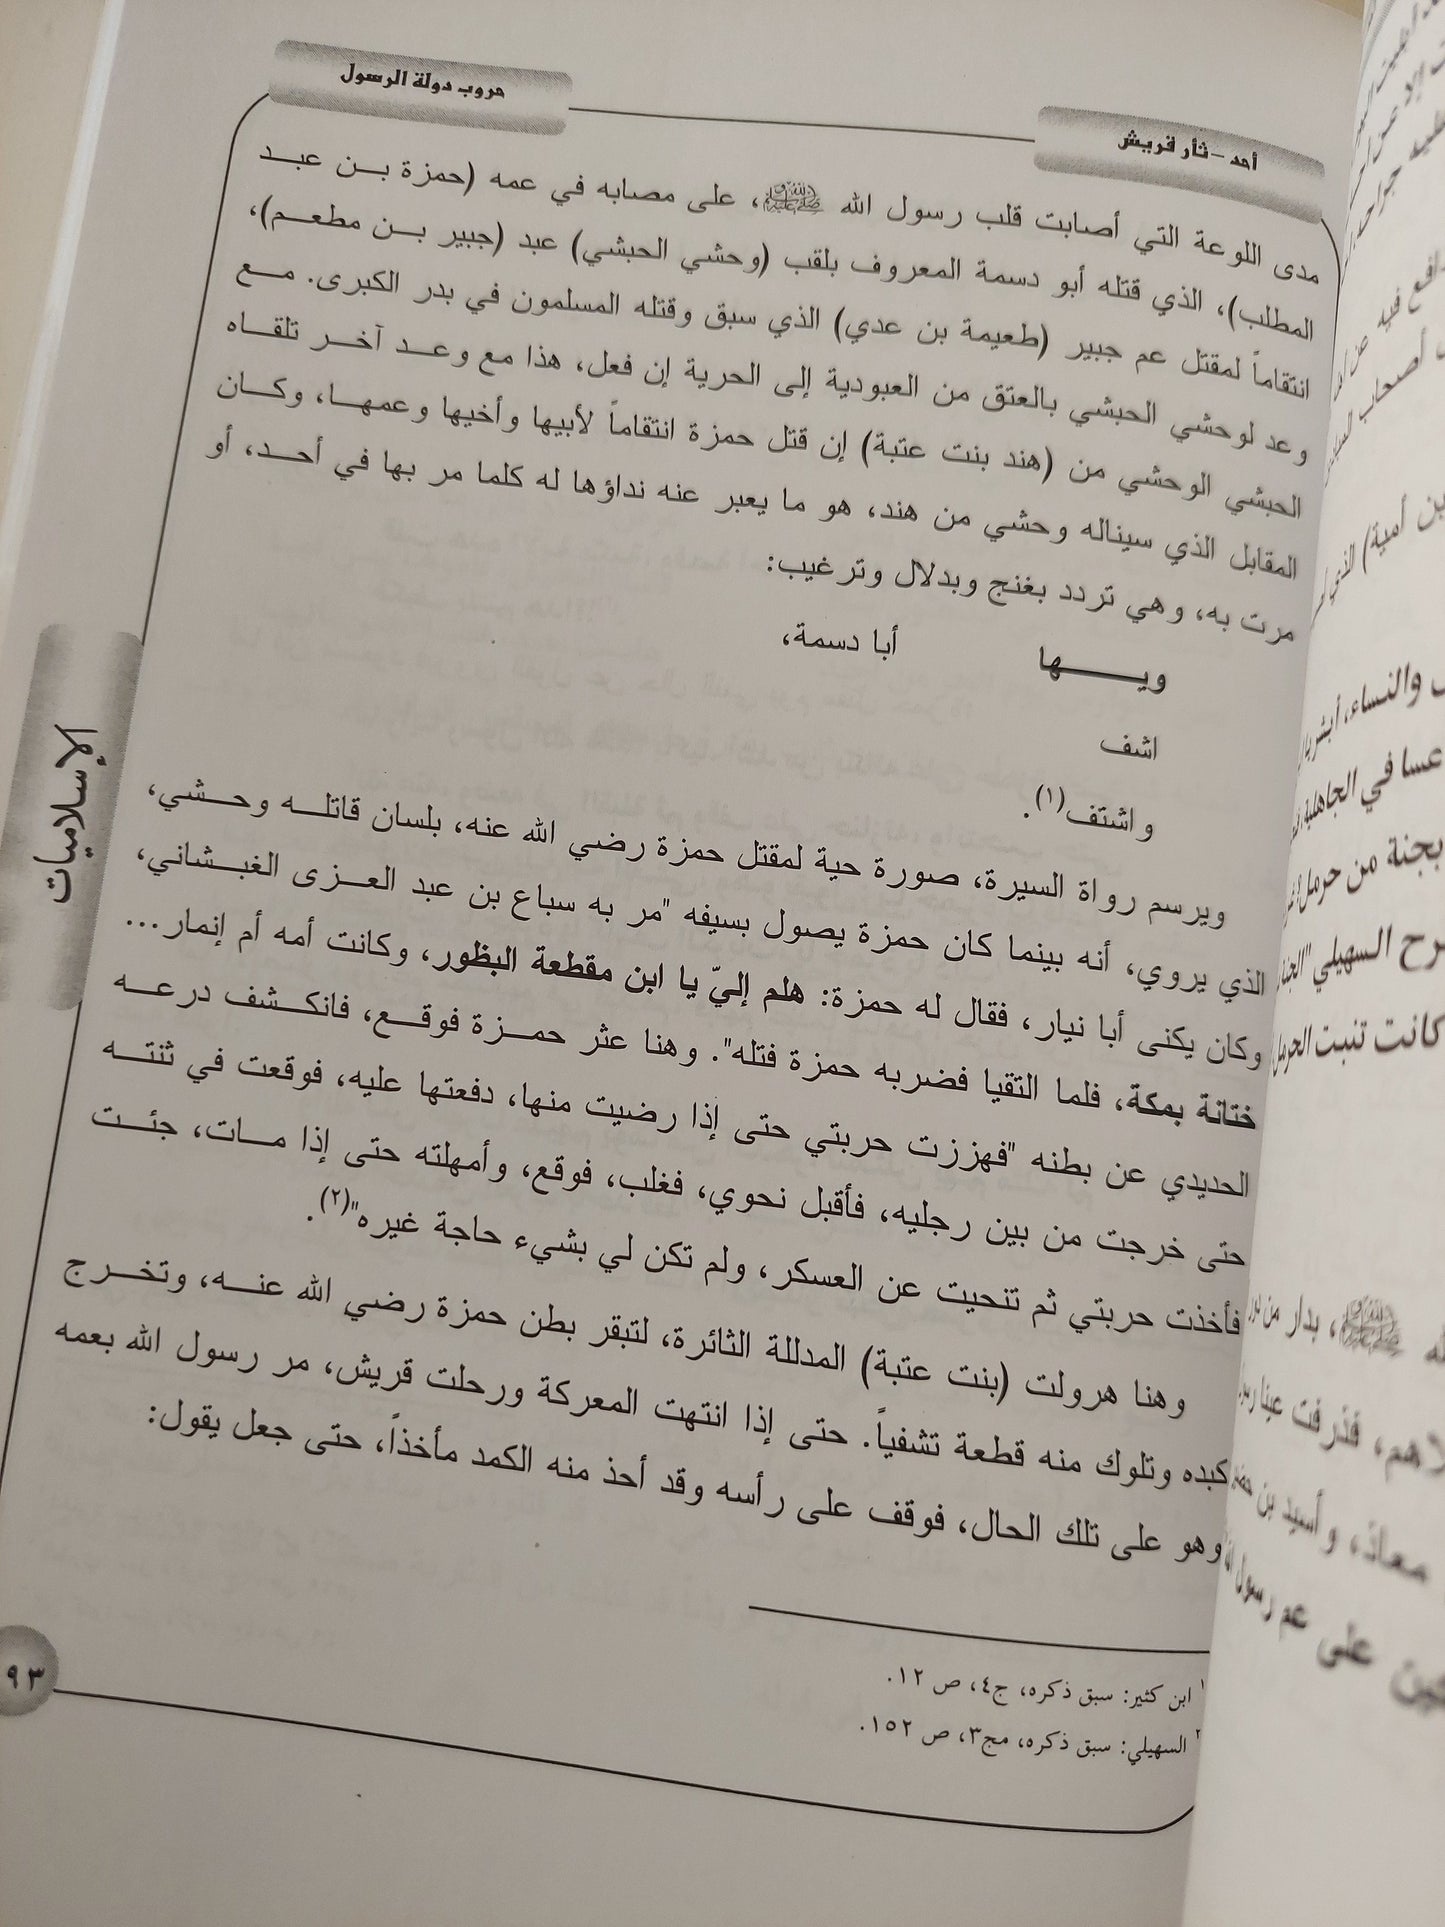 أحد – ثأر قريش
حروب دولة الرسول
مدى اللوعة التي أصابت قلب رسول الله ﷺ، على مصابه في عمه (حمزة بن عبد
المطلب)، الذي قتله أبو دسمة المعروف بلقب (وحشي الحبشي) عبد (جبير بن مطعم)،
انتقاماً لمقتل عم جبير (طعيمة بن عدي) الذي سبق وقتله المسلمون في بدر الكبرى. مع
وعد لوحشي الحبشي بالعتق من العبودية إلى الحرية إن فعل، هذا مع وعد آخر تلقاه
الحبشي الوحشي من (هند بنت عتبة) إن قتل حمزة انتقاماً لأبيها وأخيها وعمها، وكان
المقابل الذي سيناله وحشي من هند، هو ما يعبر عنه نداؤها له كلما مر بها في أحد، أو
مرت به، وهي تردد بغنج وبدلال وترغيب:
ويها أبا دسمة،
اشف
واشتف(١).
ويرسم رواة السيرة، صورة حية لمقتل حمزة رضي الله عنه، بلسان قاتله وحشي،
الذي يروي، أنه بينما كان حمزة يصول بسيفه "مر به سباع بن عبد العزى الغبشاني،
وكان يكنى أبا نيار، فقال له حمزة: هلم إليّ يا ابن مقطعة البظور، وكانت أمه أم إنمار...
ختانة بمكة، فلما التقيا فضربه حمزة فتله". وهنا عثر حمزة فوقع، فانكشف درعه
الحديدي عن بطنه "فهززت حربتي حتى إذا رضيت منها، دفعتها عليه، فوقعت في ثنته
حتى خرجت من بين رجليه، فأقبل نحوي، فغلب، فوقع، وأمهلته حتى إذا مات، جئت
فأخذت حربتي ثم تنحيت عن العسكر، ولم تكن لي بشيء حاجة غيره"(٢).
وهنا هرولت (بنت عتبة) المدللة الثائرة، لتبقر بطن حمزة رضي الله عنه، وتخرج
كبده وتلوك منه قطعة تشفياً. حتى إذا انتهت المعركة ورحلت قريش، مر رسول الله بعمه
وهو على تلك الحال، فوقف على رأسه وقد أحذ منه الكمد مأخذاً، حتى جعل يقول:
١ ابن كثير: سبق ذكره، ج٤، ص ١٢.
٢ السهيلي: سبق ذكره، مج٣، ص ١٥٢.
الإسلاميات
٩٣
بن أمية) الذي
والنساء، أبشر
عسا في الجاهلية،
بجنة من حرمل
السهيلي "الجنة
كانت تنبت الحرمل
ﷺ، بدار من
فذرفت عينا
معاذ، وأسيد بن
على عم رسول